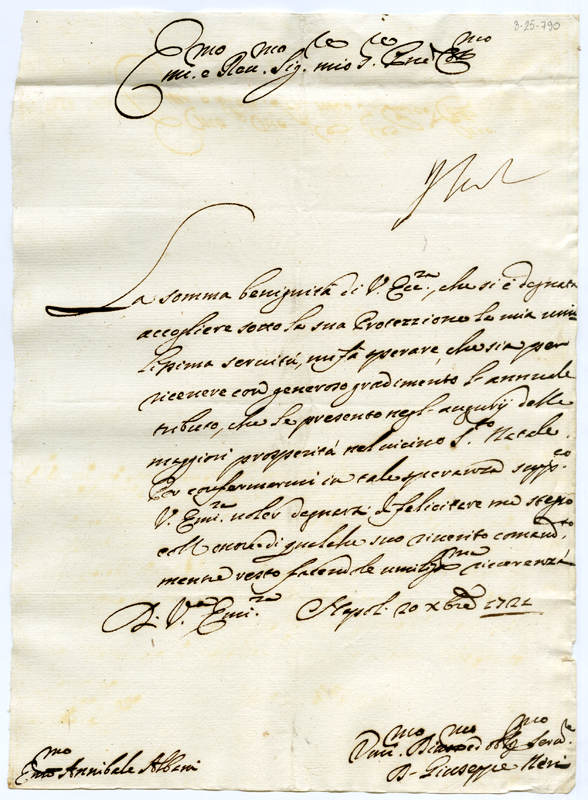 3-25-790
Emi.mo e Rev.mo Sig.re mio P.ne Col.mo
La somma benignità di V. Ecc.za, che si è degnata
accogliere sotto la sua Protezzione la mia umi=
lissima servitù, mi fà sperare, che sia per
ricevere con generoso gradimento l'annuale
tributo, che le presento negl'augurij delle
maggiori prosperità nel vicino S.to Natale.
Per confermarmi in tale speranza supp.co
V. Emi.za voler degnarsi di felicitare me stesso
coll'onore di qualche suo riverito comand.to,
mentre resto facendole umiliss.ma riverenza
Di V.a Emi.za Napol. 20 Xbre 1721
Em.mo Annibale Albani
Um.mo Dev.mo ed Obl.mo Serv.re
D. Giuseppe Neri